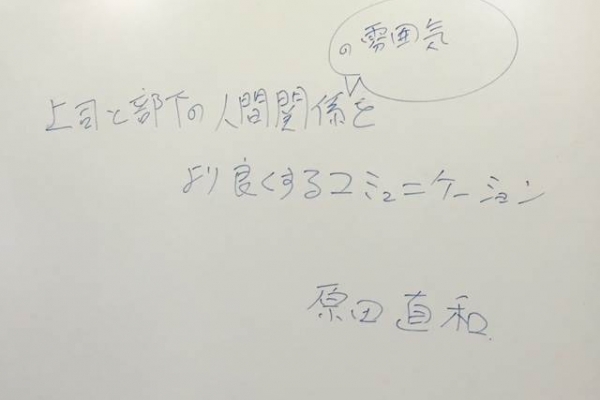 の雰囲気
上司と部下の人間関係を
より良くするコミュニケーション
原田直和